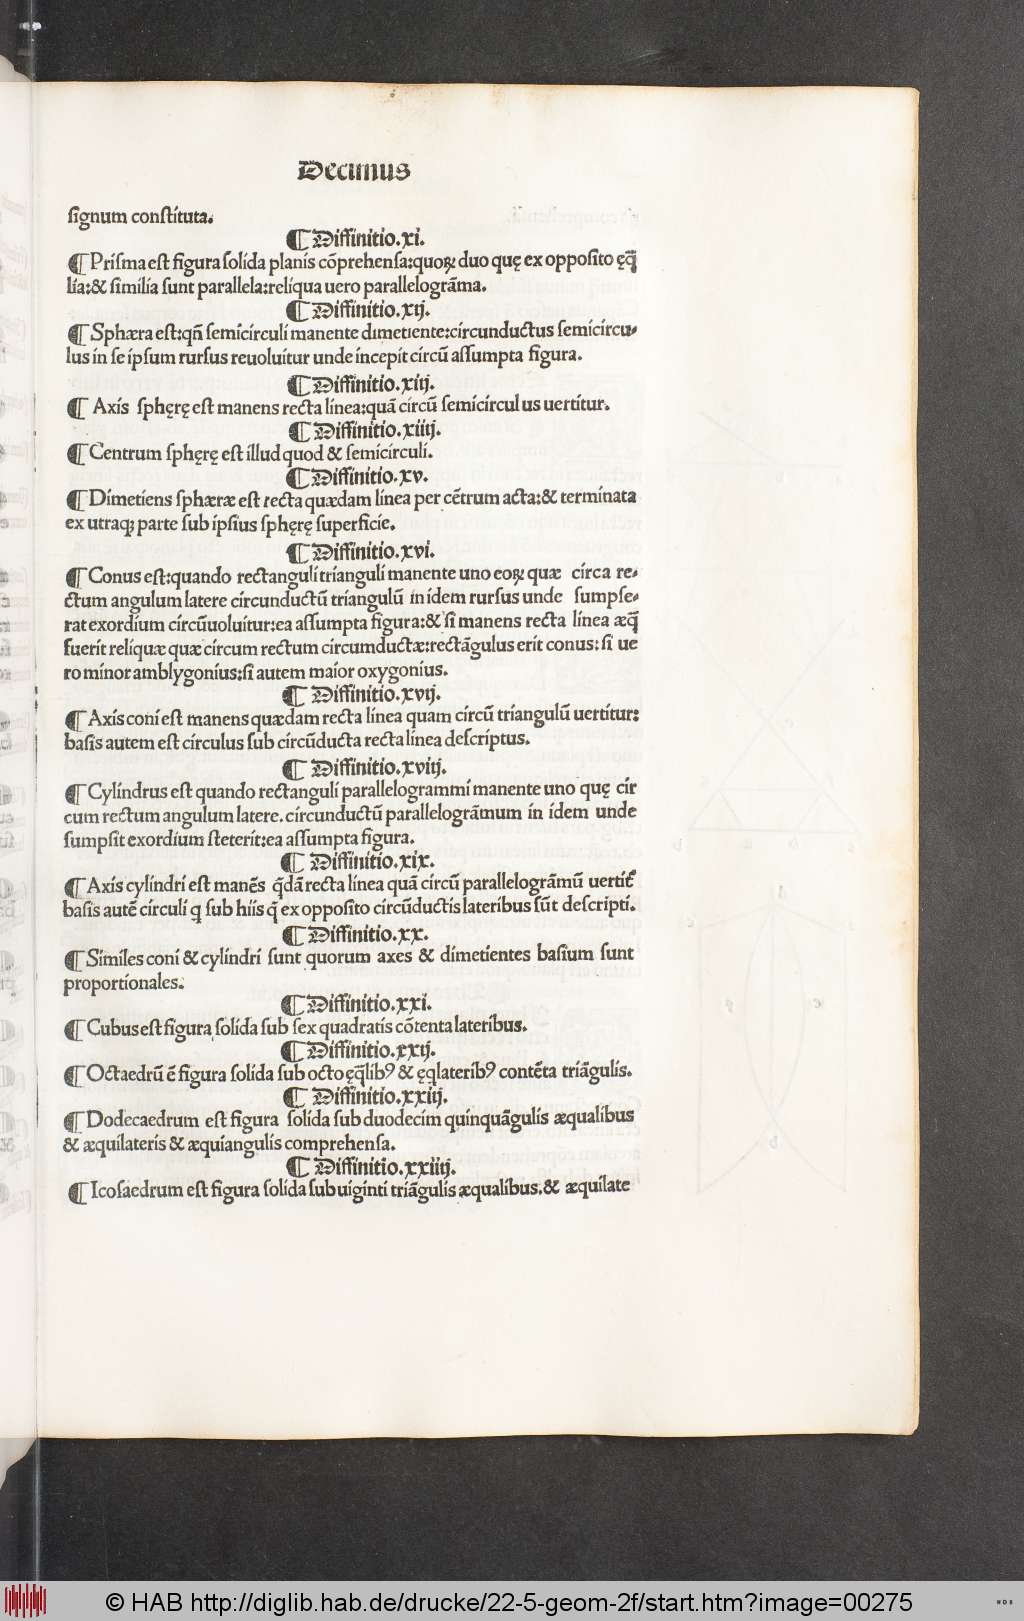 Decimus
signum constituta.
¶ Diffinitio.xi.
¶ Prisma est figura solida planis cōprehensa:quoꝝ duo quę ex opposito ęq̄
lia:& similia sunt parallela:reliqua uero parallelogrāma.
¶ Diffinitio.xij.
¶ Sphæra est:qn̄ semicirculi manente dimetiente:circunductus semicircu-
lus in se ipsum rursus reuoluitur unde incepit circū assumpta figura.
¶ Diffinitio.xiij.
¶ Axis sphęrę est manens recta linea:quā circū semicirculus uertitur.
¶ Diffinitio.xiiij.
¶ Centrum sphęrę est illud quod & semicirculi.
¶ Diffinitio.xv.
¶ Dimetiens sphæræ est recta quædam linea per cētrum acta:& terminata
ex utraqꝫ parte sub ipsius sphęrę superficie.
¶ Diffinitio.xvi.
¶ Conus est:quando rectanguli trianguli manente uno eoꝝ quæ circa re-
ctum angulum latere circunductū triangulū in idem rursus unde sumpse-
rat exordium circūuoluitur:ea assumpta figura:& si manens recta linea æq̄
fuerit reliquæ quæ circum rectum circumductæ:rectāgulus erit conus: si ue
ro minor amblygonius:si autem maior oxygonius.
¶ Diffinitio.xvij.
¶ Axis coni est manens quædam recta linea quam circū triangulū uertitur:
basis autem est circulus sub circūducta recta linea descriptus.
¶ Diffinitio.xviij.
¶ Cylindrus est quando rectanguli parallelogrammi manente uno quę cir
cum rectum angulum latere.circunductū parallelogrāmum in idem unde
sumpsit exordium steterit:ea assumpta figura.
¶ Diffinitio.xix.
¶ Axis cylindri est manēs q̄dā recta linea quā circū parallelogrāmū uertit᷑
basis autē circuli q sub hiis q̄ ex opposito circūductis lateribus sūt descripti.
¶ Diffinitio.xx.
¶ Similes coni & cylindri sunt quorum axes & dimetientes basium sunt
proportionales.
¶ Diffinitio.xxi.
¶ Cubus est figura solida sub sex quadratis cōtenta lateribus.
¶ Diffinitio.xxij.
¶ Octaedrū ē figura solida sub octo ęq̄libꝰ & ęq̄lateribꝰ contēta triāgulis.
¶ Diffinitio.xxiij.
¶ Dodecaedrum est figura solida sub duodecim quinquāgulis æqualibus
& æquilateris & æquiangulis comprehensa.
¶ Diffinitio.xxiiij.
¶ Icosaedrum est figura solida sub uiginti triāgulis æqualibus.& æquilate
© HAB http://diglib.hab.de/drucke/22-5-geom-2f/start.htm?image=00275